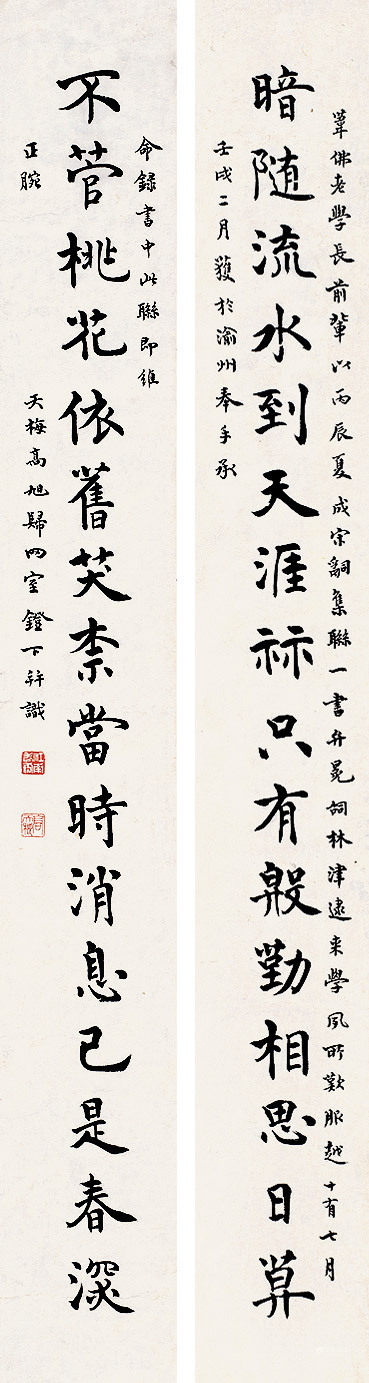 葦佛老學長前輩以丙辰夏成宋詞集聯一書弁冕詞林津逮來學夙所歎服越十有七月
暗随流水到天涯祘只有殷勤相思日算
壬戌二月獲於渝州奉手承
命錄書中此聯即維
不菅桃花依舊笑柰當時消息已是春深
正腕
天梅高旭歸四室鐙下并識